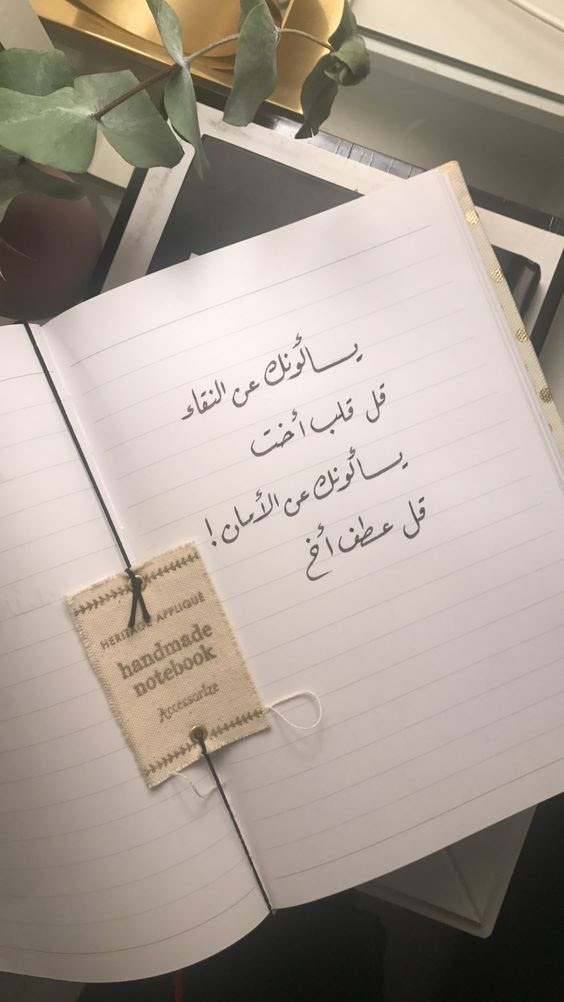 يسألونك عن النقاء
قل قلب أخت
يسألونك عن الأمان !
قل عطف أخ
HERITAGE APPLIQUÉ
handmade
notebook
Accessorize